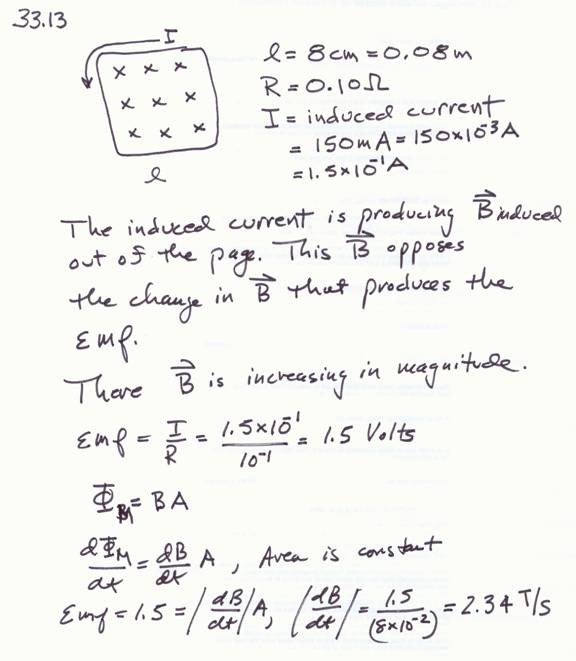 33.13
I
x x x
x x x
x x x
l
l = 8cm = 0.08m
R = 0.10Ω
I = induced current
= 150mA = 150x10⁻³A
= 1.5x10⁻¹A
The induced current is producing B⃗ induced
out of the page. This B⃗ opposes
the change in B⃗ that produces the
Emf.
There B⃗ is increasing in magnitude.
Emf = I/R = 1.5x10⁻¹/10⁻¹ = 1.5 Volts
Φ_M = BA
dΦ_M/dt = dB/dt A, Area is constant
Emf = 1.5 = |dB/dt|A, |dB/dt| = 1.5/(8x10⁻²) = 2.34 T/s